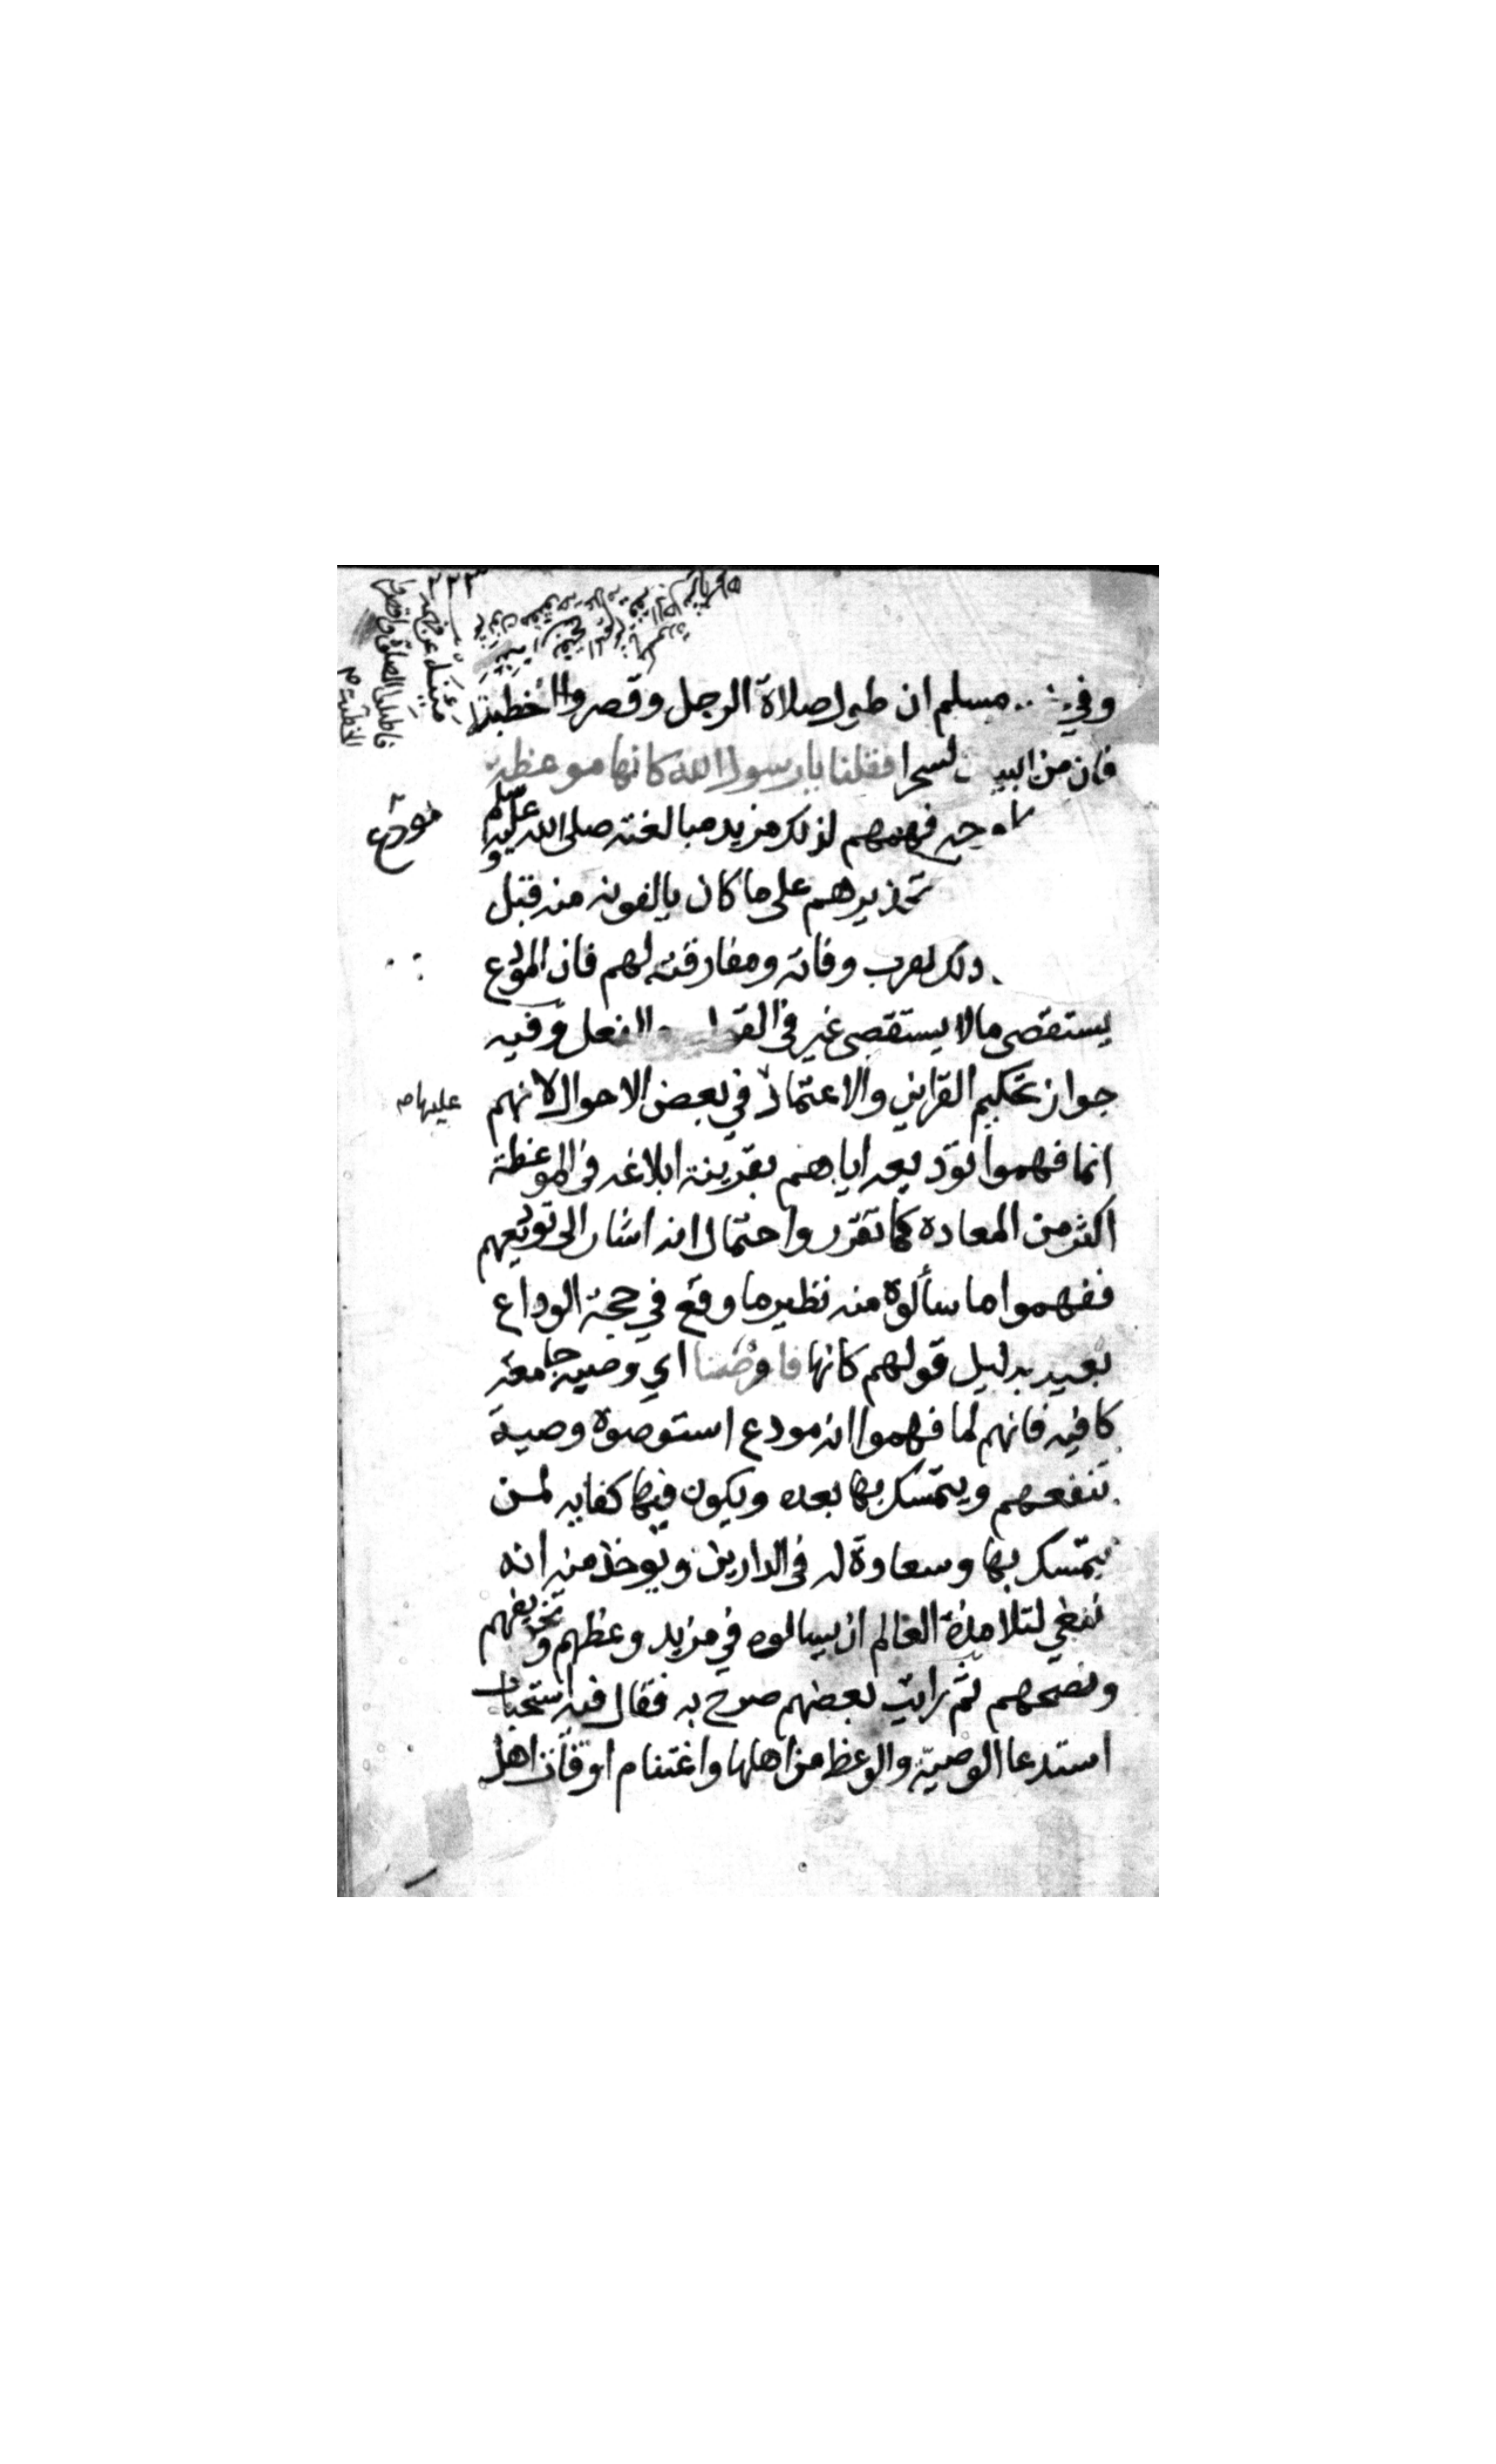 ٢٣٣
مئنة من فقهه
فاطيلوا الصلاة واقصروا
الخطبة م
وفي مسلم ان طول صلاة الرجل وقصر الخطبة
فان من البيان لسحرا فقلنا يا رسول الله كانها موعظة
مودع
وجه فهمهم لذلك مزيد مبالغته صلى الله عليه وسلم
تحذيرهم على ما كان يالفونه منه قبل
ذلك لقرب وفاته ومفارقته لهم فان المودع
يستقصى مالا يستقصى غير في القول والفعل وفيه
جواز تحكيم القراين والاعتماد في بعض الاحوال لانهم
عليها م
انما فهموا توديعه اياهم بقرينة ابلاغه في الموعظة
اكثر من العادة كما تقرر واحتمال انه اشار الى توديعهم
ففهموا ما سألوه منه نظير ما وقع في حجة الوداع
بعيد بدليل قولهم كانها فاوصنا اي وصية جامعة
كافيه فانهم لما فهموا انه مودع استوصوه وصية
تنفعهم ويتمسك بها بعده ويكون فيها كفايه لمن
يتمسك بها وسعادة له في الدارين ويوخذ منه انه
ينبغي لتلامذة العالم ان يسالوه في مزيد وعظهم وتخويفهم
ونصحهم ثم رايت بعضهم صرح به فقال فيه استحباب
استدعا الوصية والوعظ من اهلها واغتنام اوقات اهل